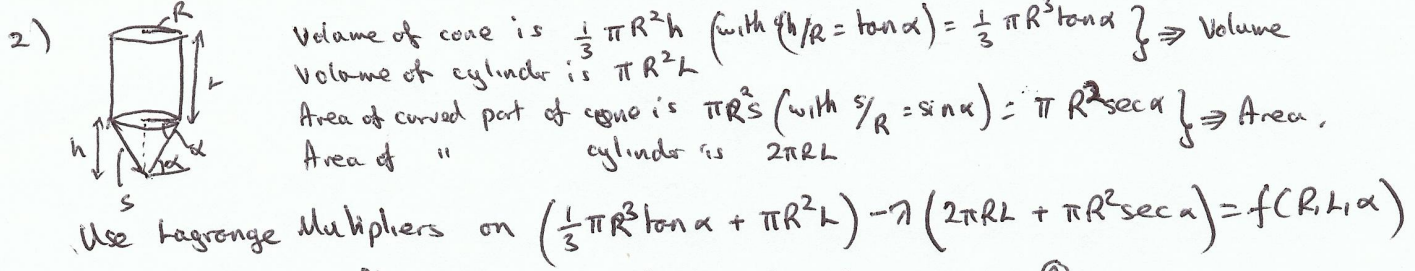 2)
R
L
h
α
α
s
Volume of cone is 1/3 πR²h (with h/R = tan α) = 1/3 πR³ tan α } ⇒ Volume
Volume of cylinder is πR²L
Area of curved part of cone is πR²s (with s/R = sin α) = πR² sec α } ⇒ Area.
Area of " cylinder is 2πRL
Use Lagrange Multipliers on (1/3 πR³ tan α + πR²L) - λ (2πRL + πR² sec α) = f(R, L, α)